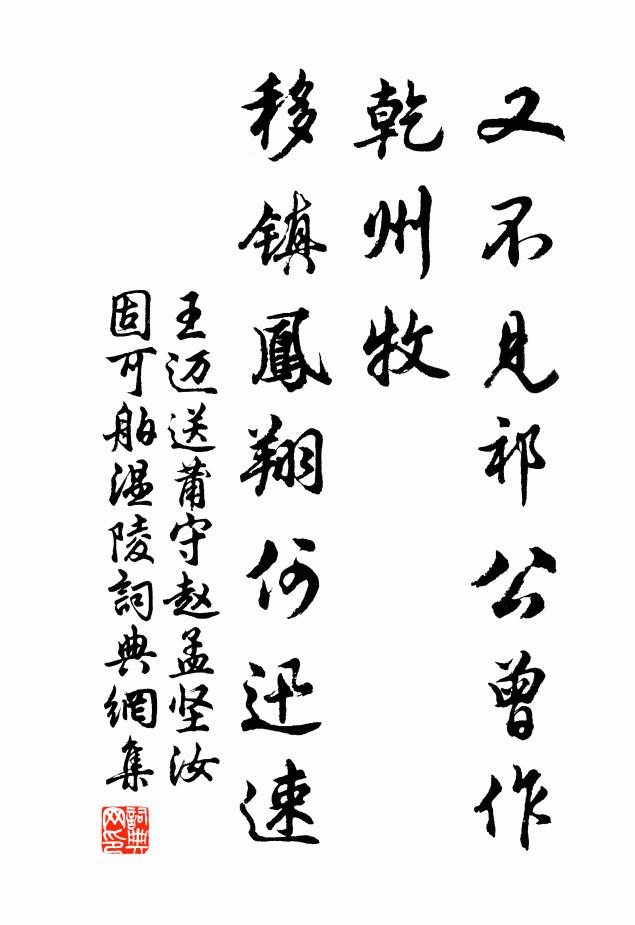 又不見祁公曾作
乾州牧
移鎮鳳翔何迅速
王迈送莆守赵孟坚汝
固可舶温陵詞典網集
詞典網印